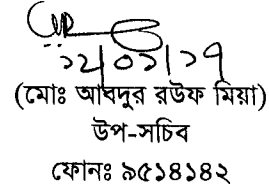 ১২/০১/১৭
(মোঃ আবদুর রউফ মিয়া)
উপ-সচিব
ফোনঃ ৯৫১৪১৪২